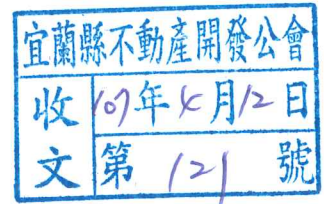 宜蘭縣不動產開發公會
收文
107年4月12日
第121號